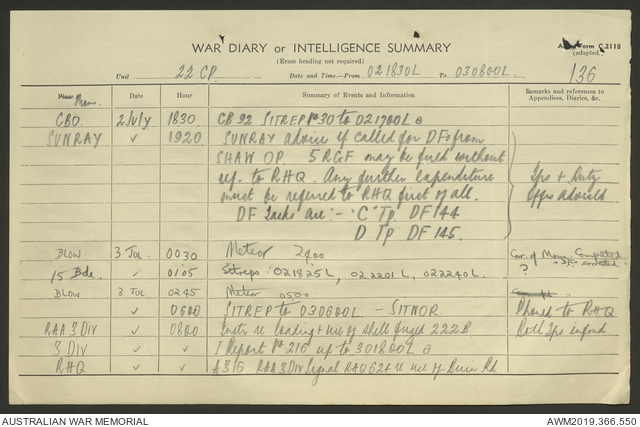 WAR DIARY or INTELLIGENCE SUMMARY
Army Form C.2118
(adapted)
(Erase heading not required)
Unit 22 CP Date and Time—From 021830L To 030800L 136
Place or From Date Hour Summary of Events and Information Remarks and references to Appendices, Diaries, &c.
CBO 2 July 1830 CB 92 SITREP No 30 to 021700L
SUNRAY ✓ 1920 SUNRAY advice if called for DFs from
SHAW OP. 5 RGF may be fired without
ref to RHQ. Any further expenditure Sps + Duty
must be referred to RHQ first of all. Offrs advised
DF Tasks are:- "C" Tp DF 144
D Tp DF 145.
BLOW 3 Jul 0030 Meteor 2400 Computed
15 Bde. ✓ 0105 Sitreps 021825L, 022201L, 022240L. ?
BLOW 3 Jul 0245 Meteor 0500
✓ 0600 SITREP to 030600L - SITNOR Phoned to RHQ
RAA 3 DIV ✓ 0800 re loading + use of shell fuzed 222B Both Tps
3 DIV ✓ I Report No 216 up to 301800L
RHQ ✓ A316 RAA 3 Div Signal RAQ 624 re use of Rd
AUSTRALIAN WAR MEMORIAL AWM2019.366.550